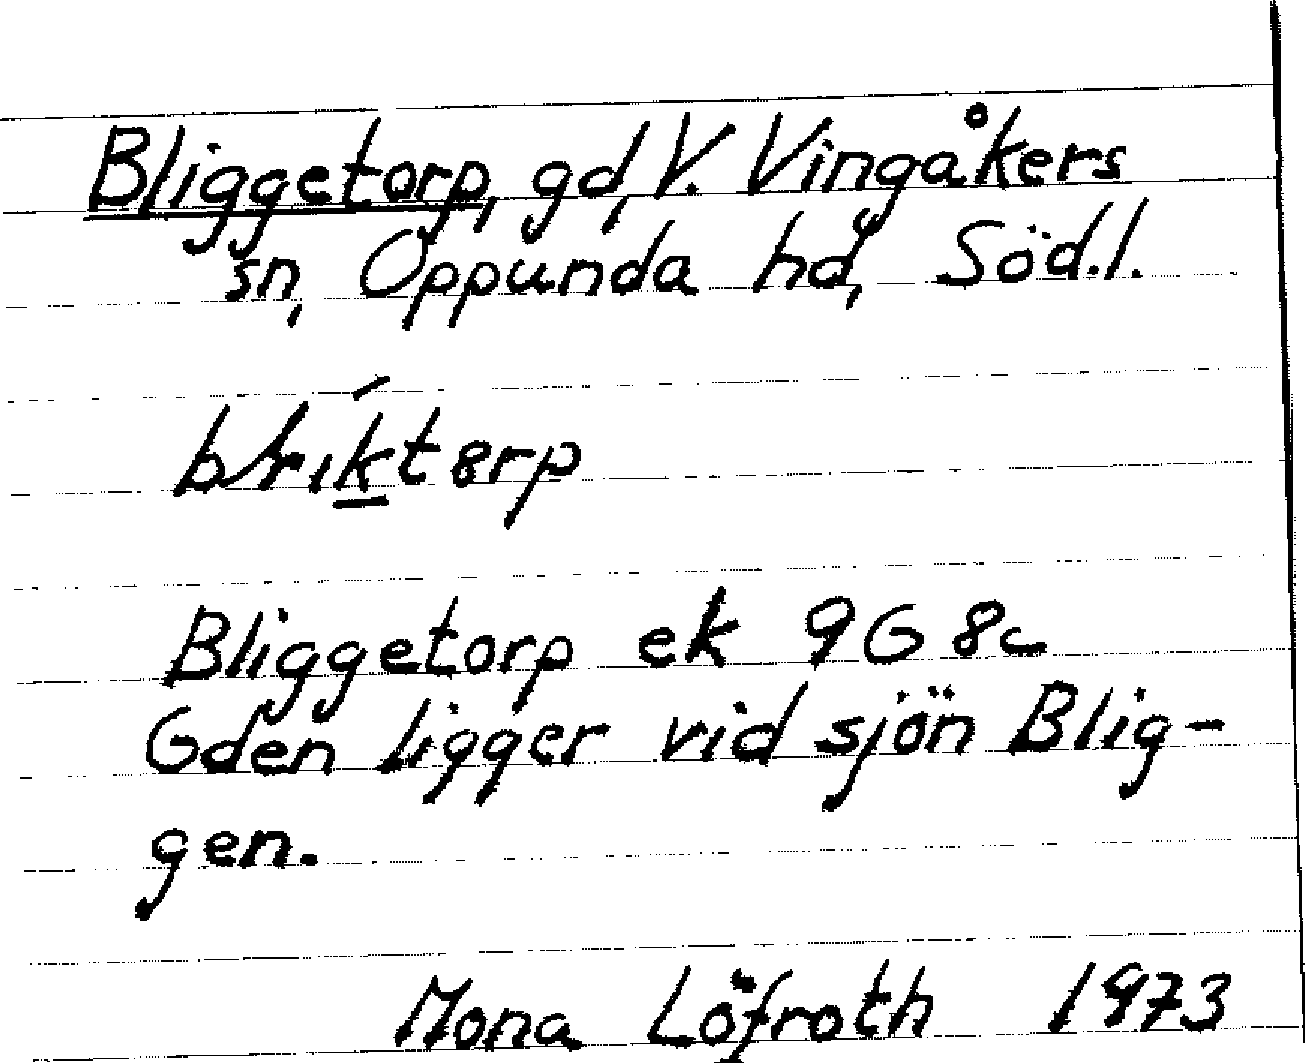 Bliggetorp, gd, V. Vingåkers
sn, Oppunda hd, Söd.l.
Bliggetorp ek 9G 8c
Gden ligger vid sjön Blig-
gen.
Mona Löfroth 1973